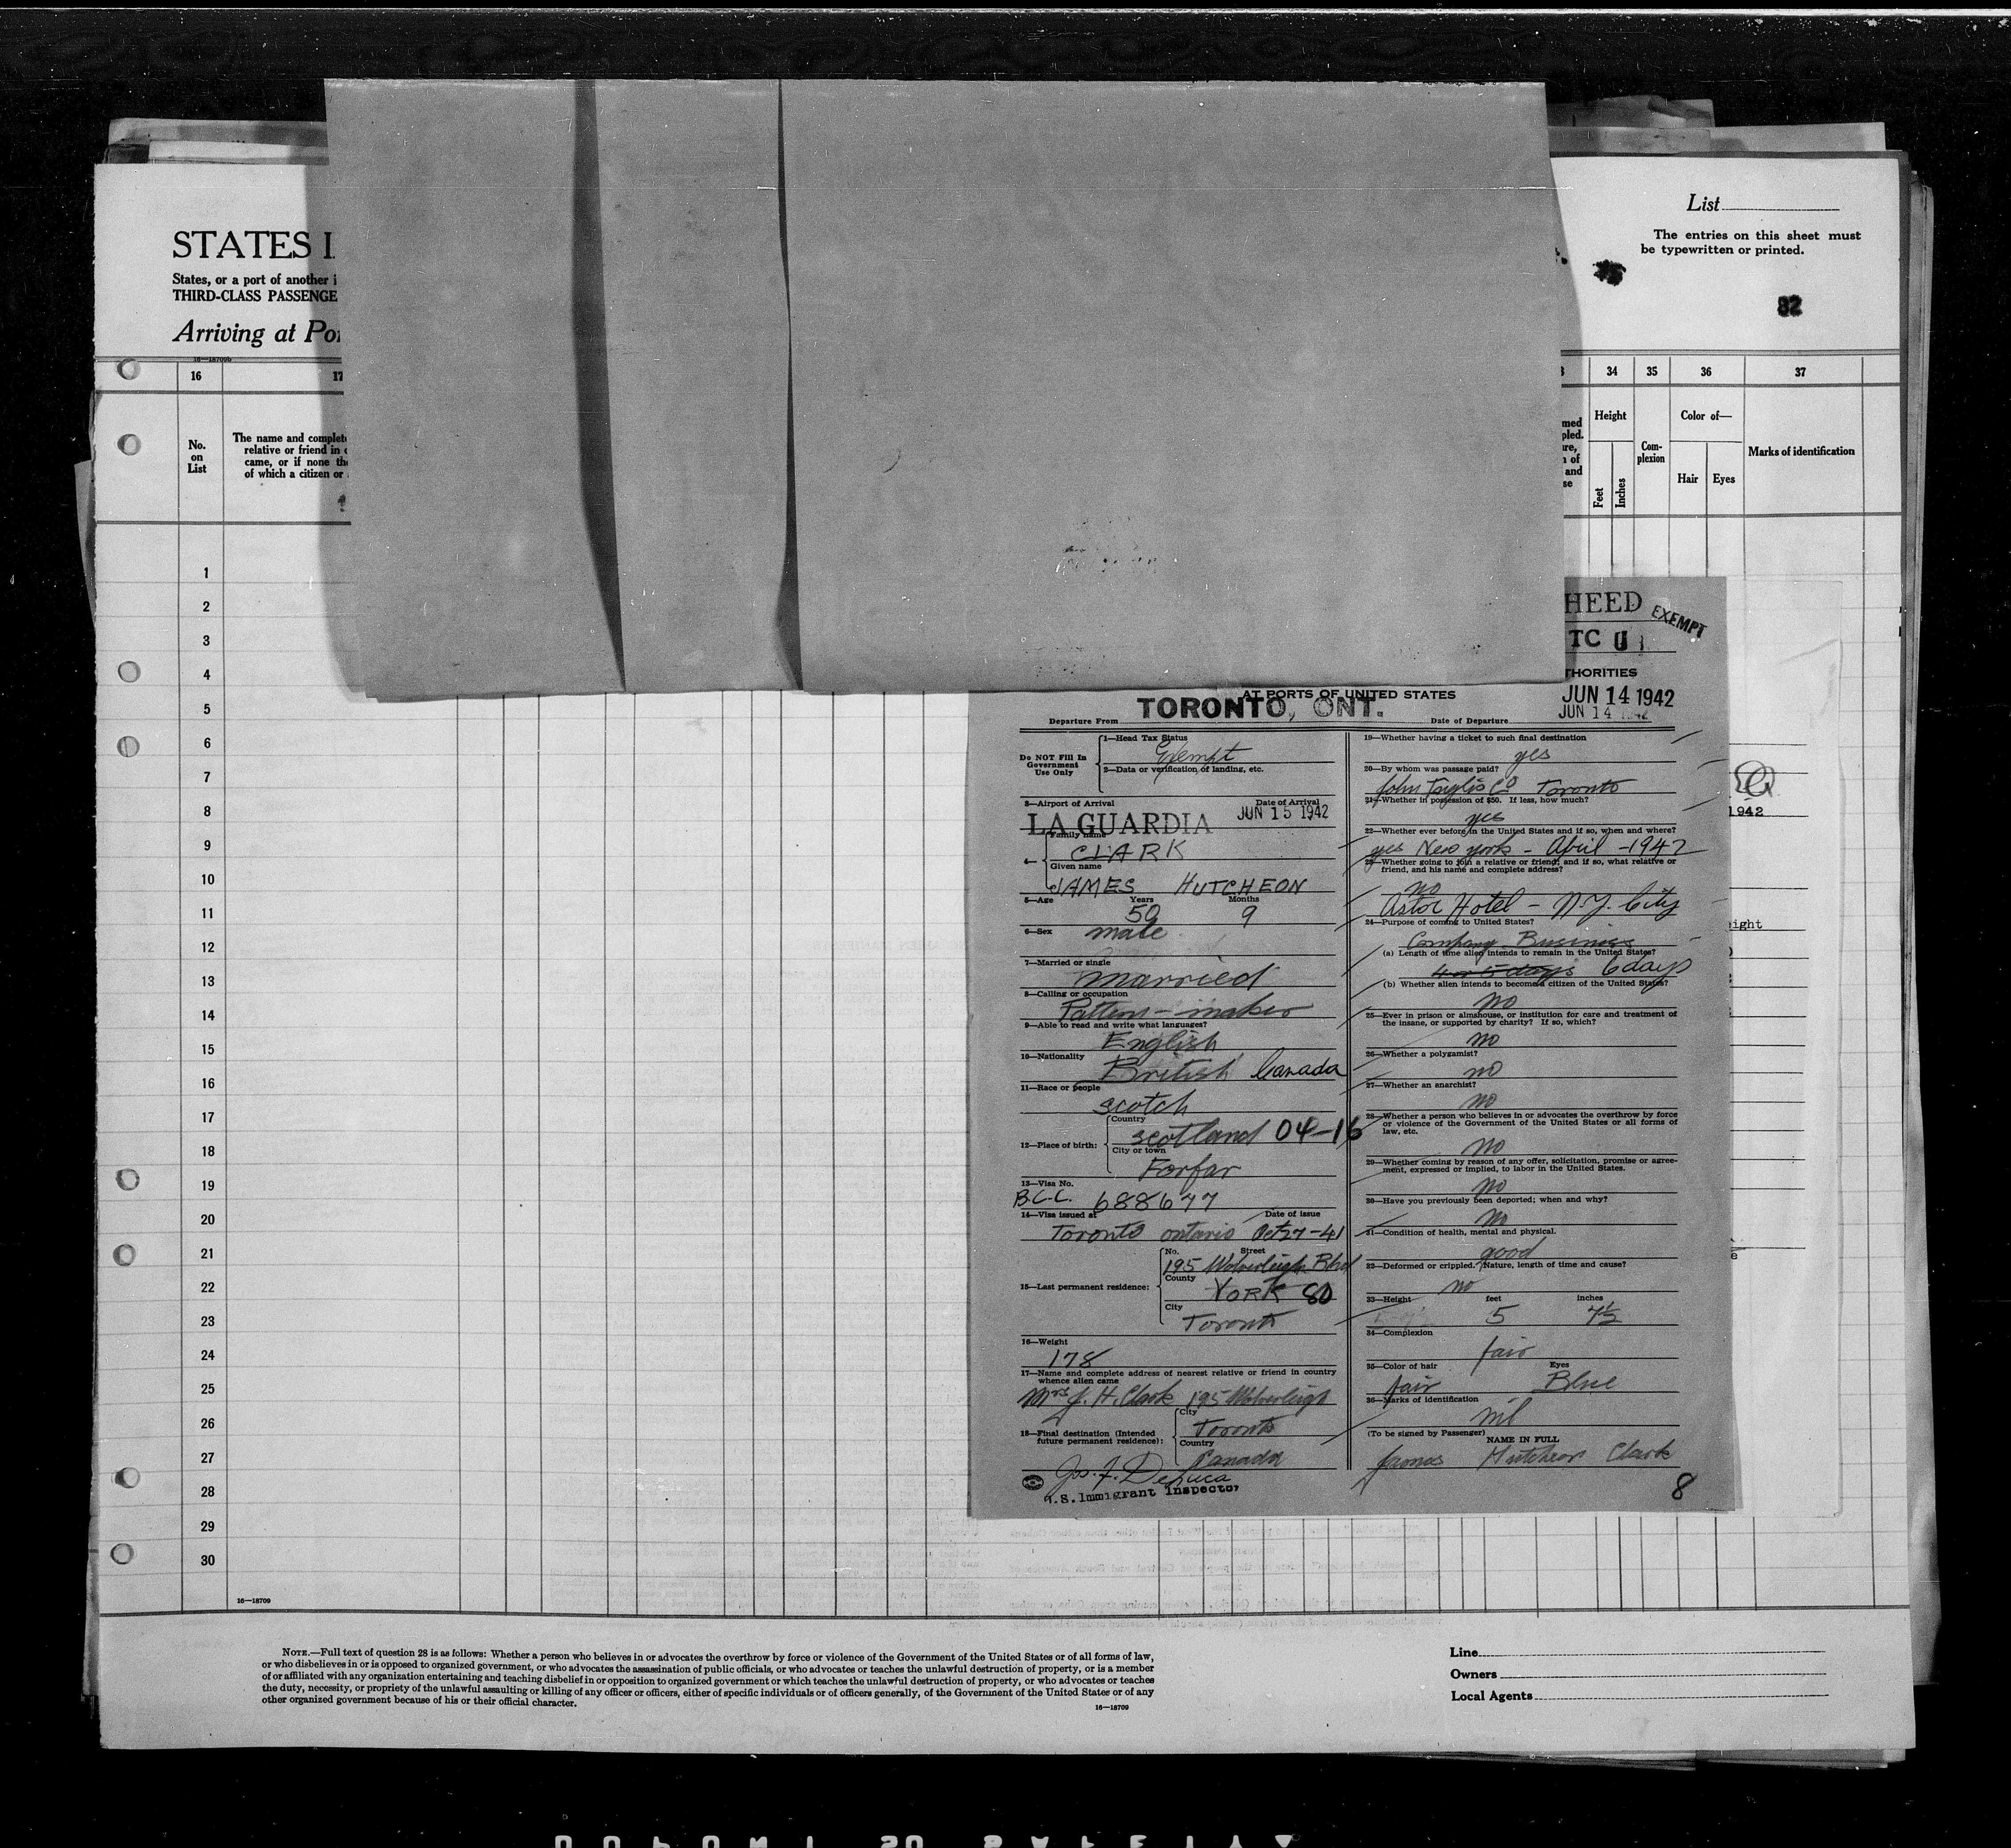 STATES I
States, or a port of another i
THIRD-CLASS PASSENGE
Arriving at Po
16—18709b
List
The entries on this sheet must
be typewritten or printed.
82
16 17
34 35 36 37
No.
on
List
The name and complet
relative or friend in
came, or if none th
of which a citizen or
med
pled.
ure,
n of
and
se
Height
Feet
Inches
Com-
plexion
Color of—
Hair
Eyes
Marks of identification
1
2
3
4
5
6
7
8
9
10
11
12
13
14
15
16
17
18
19
20
21
22
23
24
25
26
27
28
29
30
16—18709
HEED
EXEMPT
TC
THORITIES
AT PORTS OF UNITED STATES
Departure From TORONTO, ONT.
Date of Departure JUN 14 1942
JUN 14
Do NOT Fill In
Government
Use Only
1—Head Tax Status
Exempt
2—Data or verification of landing, etc.
3—Airport of Arrival
LA GUARDIA
Date of Arrival
JUN 15 1942
4—
Family name
CLARK
Given name
JAMES HUTCHEON
5—Age Years Months
50 9
6—Sex
male
7—Married or single
married
8—Calling or occupation
Pattern-maker
9—Able to read and write what languages?
English
10—Nationality
British Canada
11—Race or people
scotch
12—Place of birth:
Country
scotland 04-16
City or town
Forfar
13—Visa No.
B.C.C. 688677
14—Visa issued at Date of issue
Toronto ontario Oct 27-41
15—Last permanent residence:
No. Street
195 Wolverleigh Blvd
County
YORK 80
City
Toronto
16—Weight
178
17—Name and complete address of nearest relative or friend in country
whence alien came
Mrs J. H. Clark 195 Wolverleigh
18—Final destination (Intended
future permanent residence):
City
Toronto
Country
Canada
Jos. F. DeLuca
U.S. Immigrant Inspector
19—Whether having a ticket to such final destination
yes
20—By whom was passage paid?
John Inglis Co Toronto
21—Whether in possession of $50. If less, how much?
yes
22—Whether ever before in the United States and if so, when and where?
yes New york - April -1942
23—Whether going to join a relative or friend; and if so, what relative or
friend, and his name and complete address?
no
Astor Hotel - N.Y. City
24—Purpose of coming to United States?
Company Business
(a) Length of time alien intends to remain in the United States?
4 or 5 days 6 days
(b) Whether alien intends to become a citizen of the United States?
no
25—Ever in prison or almshouse, or institution for care and treatment of
the insane, or supported by charity? If so, which?
no
26—Whether a polygamist?
no
27—Whether an anarchist?
no
28—Whether a person who believes in or advocates the overthrow by force
or violence of the Government of the United States or all forms of
law, etc.
no
29—Whether coming by reason of any offer, solicitation, promise or agree-
ment, expressed or implied, to labor in the United States.
no
30—Have you previously been deported; when and why?
no
31—Condition of health, mental and physical.
good
32—Deformed or crippled. Nature, length of time and cause?
no
33—Height feet inches
5 7½
34—Complexion
fair
35—Color of hair Eyes
fair Blue
36—Marks of identification
nil
(To be signed by Passenger)
NAME IN FULL
James Hutcheon Clark
8
1942
ight
NOTE.—Full text of question 28 is as follows: Whether a person who believes in or advocates the overthrow by force or violence of the Government of the United States or of all forms of law,
or who disbelieves in or is opposed to organized government, or who advocates the assassination of public officials, or who advocates or teaches the unlawful destruction of property, or is a member
of or affiliated with any organization entertaining and teaching disbelief in or opposition to organized government or which teaches the unlawful destruction of property, or who advocates or teaches
the duty, necessity, or propriety of the unlawful assaulting or killing of any officer or officers, either of specific individuals or of officers generally, of the Government of the United States or of any
other organized government because of his or their official character.
16—18709
Line
Owners
Local Agents